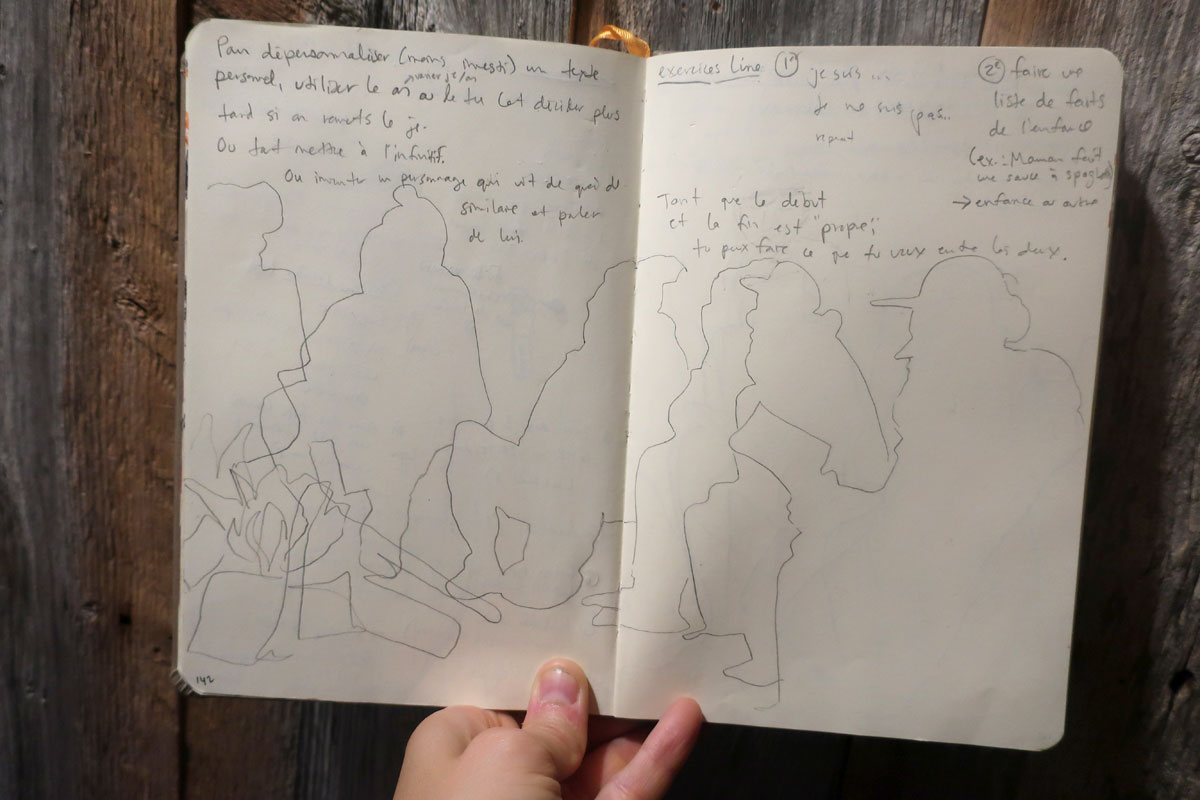 Pour dépersonnaliser (moins investi) un texte
varier je/on
personnel, utiliser le on ou le tu (et décider plus
tard si on remets le je.
Ou tout mettre à l'infinitif.
Ou inventer un personnage qui vit de quoi de
similaire et parler
de lui.
142
exercices Line 1° je suis ...
je ne suis pas...
2° faire une
liste de faits
de l'enfance
(ex.: Maman fait
une sauce à spaghetti)
→ enfance ou autre
Tant que le début
et la fin est "propre",
tu peux faire ce que tu veux entre les deux.